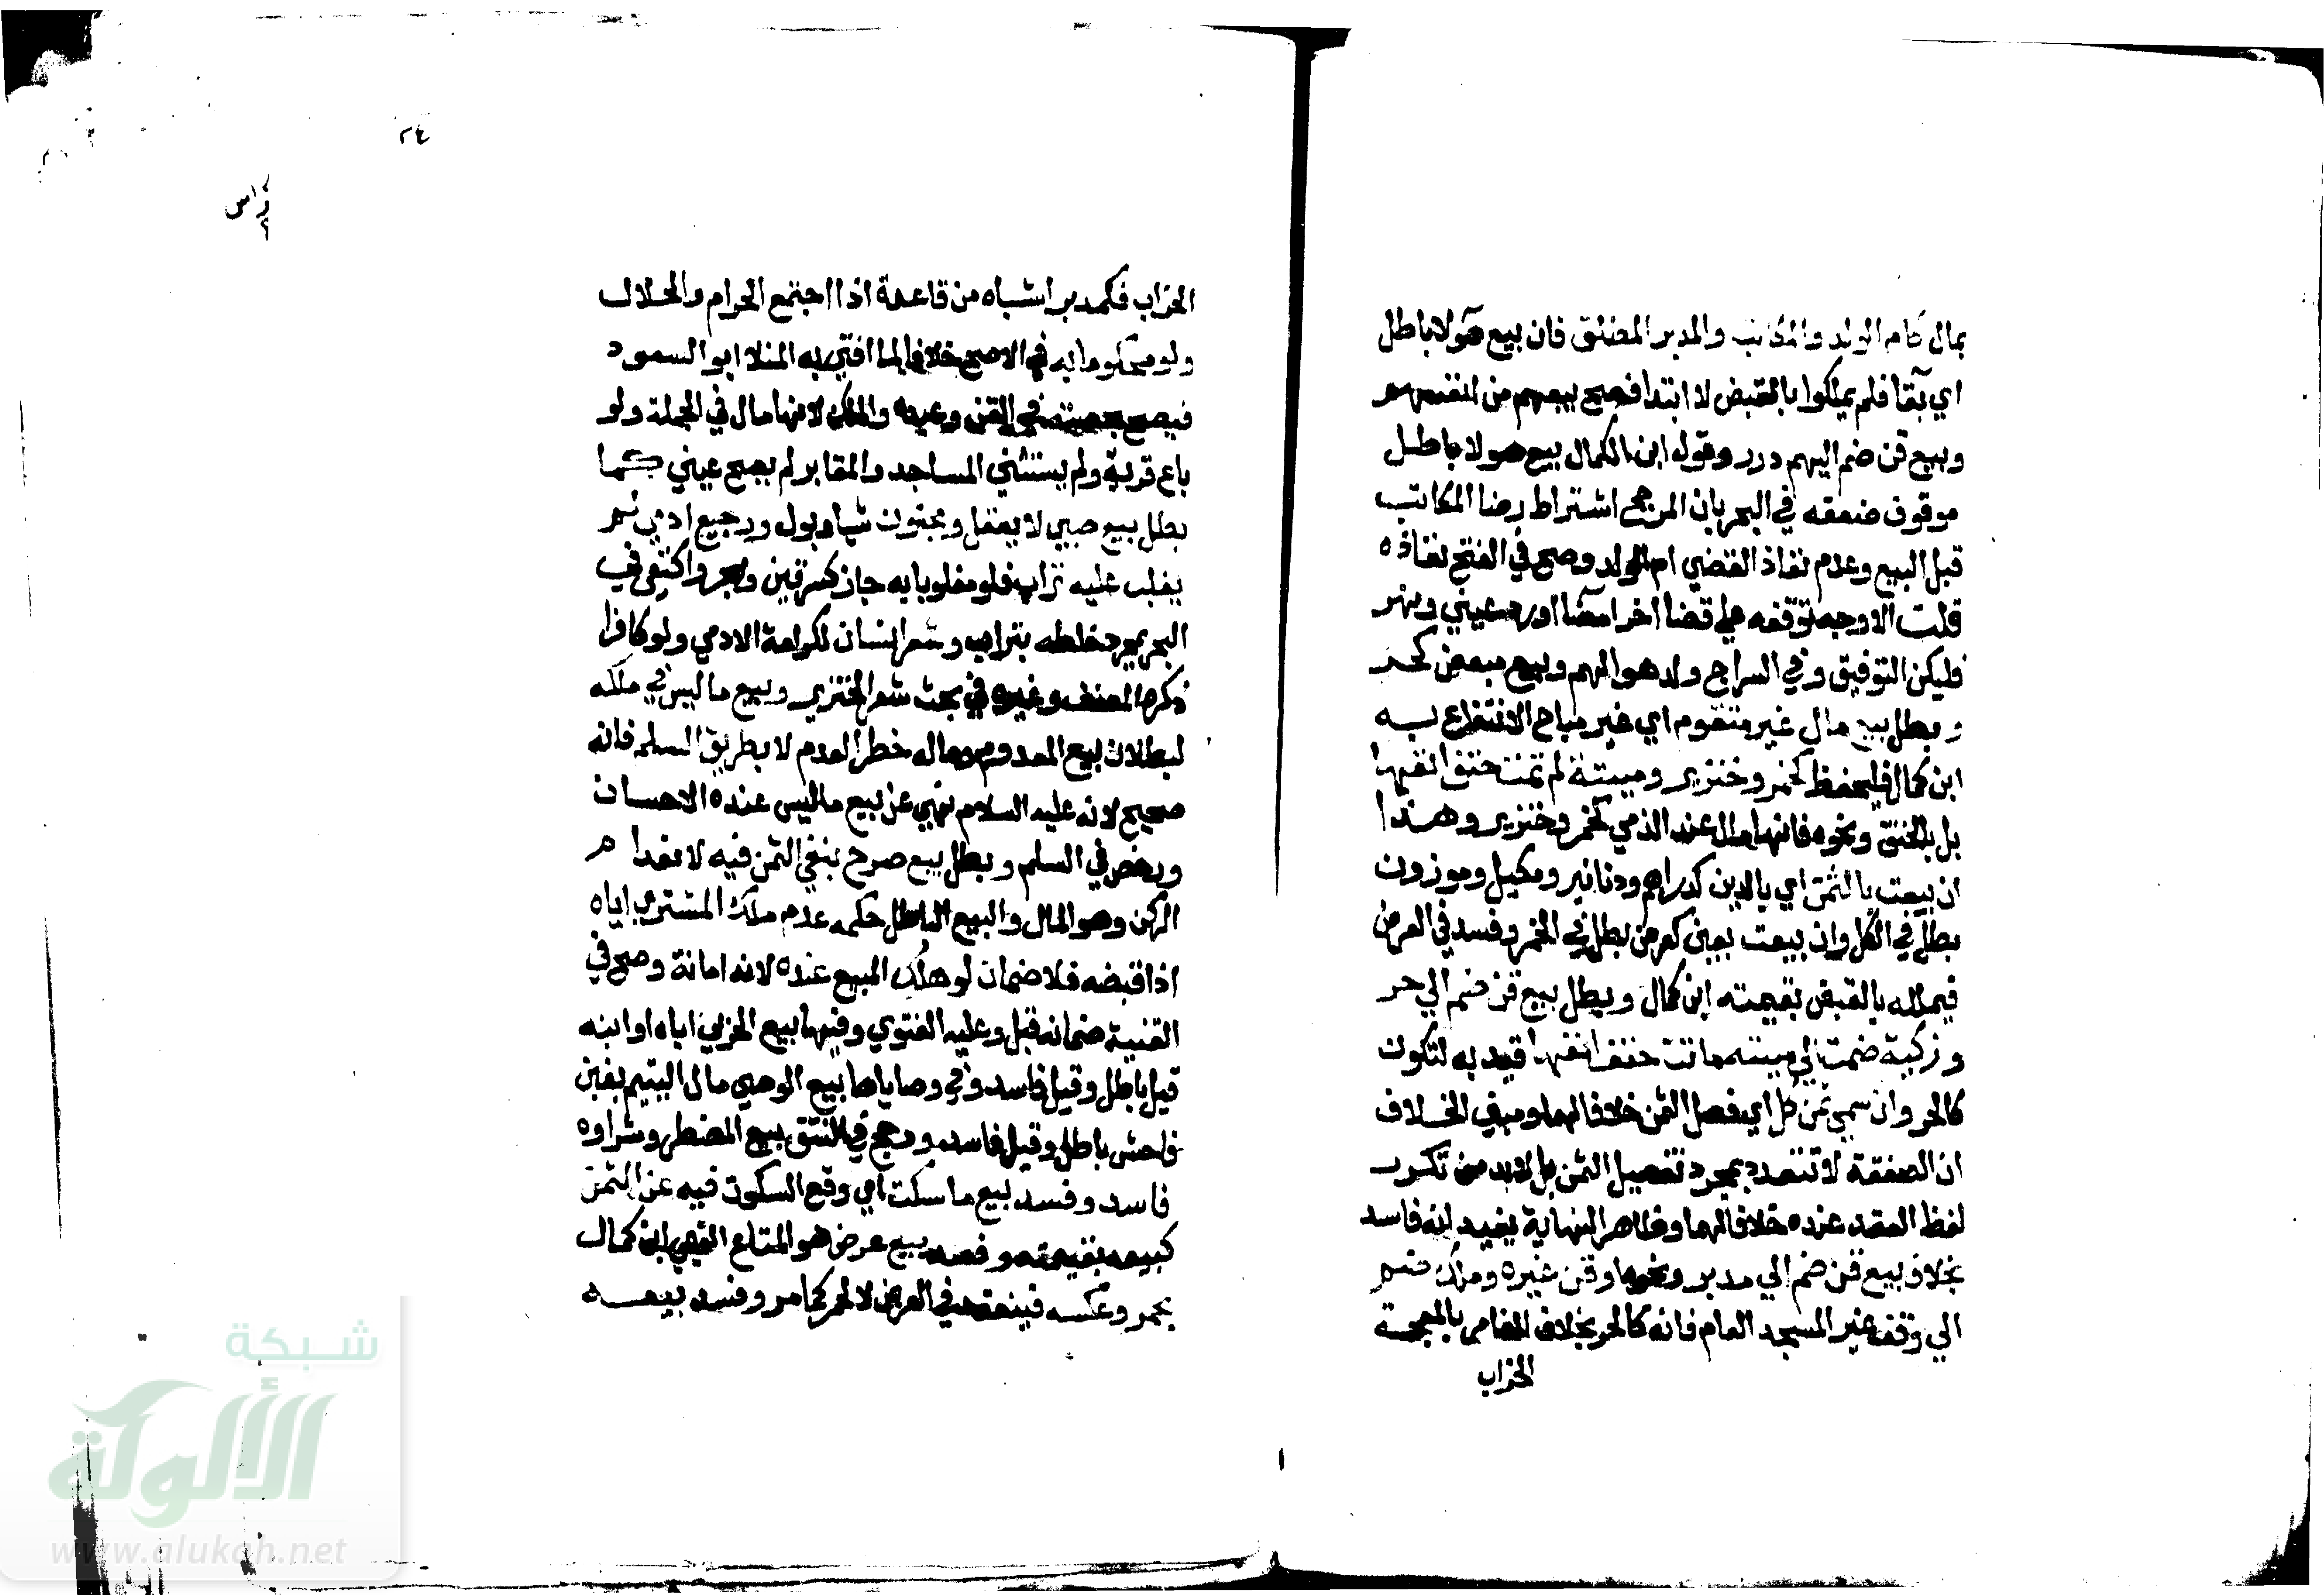 بمال كام الولد والمكاتب والمدبر المطلق فان بيع هولا باطل
اي بقا فلم يملكوا بالقبض لا ابتدا فصح بيعهم من انفسهم
وبيع قن ضم اليهم درر وقول ابن الكمال بيع هولا باطل
موقوف ضعفه في البحر بان المرجح اشتراط رضا المكاتب
قبل البيع وعدم نفاذ القضي ام الولد وصحح في الفتح نفاذه
قلت الاوجه توقفه على قضا اخر امضا او رد عيني ونهر
فليكن التوفيق وفي السراج ولد هو الهم وبيع مبعض كحر
وبطل بيع مال غير متقوم اي غير مباح الانتفاع به
ابن كمال فليحفظ كخمر وخنزير وميتة لم تمت حتف انفها
بل بالخنق ونحوه فانها مال عند الذمي كخمر وخنزير وهذا
ان بيعت بالثمن اي بالدين كدراهم ودنانير ومكيل وموزون
بطل في الكل وان بيعت بعين كعرض بطل في الخمر وفسد في العرض
فيملكه بالقبض بقيمته ابن كمال وبطل بيع قن ضم الي حر
وزكية ضمت الي ميتة ماتت حتف انفها قيد به لتكون
كالحر وان سمي ثمن كل اي فصل الثمن خلافا لهما ومبني الخلاف
ان الصفقة لا تتعدد بمجرد تفصيل الثمن بل لابد من تكرر
لفظ العقد عنده خلافا لهما وظاهر النهاية يفيد انه فاسد
بخلاف بيع قن ضم الي مدبر ونحوه او قن غيره وملك ضم
الي وقف غير المسجد العام فانه كالحر بخلاف الغامر بالمعجمة
الخراب
٢٤
الخراب فكمدبر اشباه من قاعدة اذا اجتمع الحرام والحلال
ولو محكوما به في الاصح خلافا لما افتي به المنلا ابو السعود
فيصح بحصته في القن وعبده والملك لانها مال في الجملة ولو
باع قرية ولم يستثني المساجد والمقابر لم يصح عيني كما
بطل بيع صبي لا يعقل ومجنون شيا وبول ورجيع ادمي لم
يغلب عليه تراب فلو مغلوبا به جاز كسرقين وبعر واكتفى في
البحر بمجرد خلطه بتراب وشعر انسان لكرامة الادمي ولو كافرا
ذكره المصنف وغيره في بحث شعر الخنزير وبيع ما ليس في ملكه
لبطلان بيع المعدوم وماله خطر العدم لا بطريق السلم فانه
صحيح لانه عليه السلام نهي عن بيع ما ليس عنده الانسان
ورخص في السلم وبطل بيع صرح بنفي الثمن فيه لانعدام
الركن وهو المال والبيع الباطل حكمه عدم ملك المشتري اياه
اذا قبضه فلا ضمان لو هلك المبيع عنده لانه امانة وصحح في
القنية ضمانه قيل وعليه الفتوي وفيها بيع الحربي اباه او ابنه
قيل باطل وقيل فاسد وفي وصاياها بيع الوصي مال اليتيم بغبن
فاحش باطل وقيل فاسد ورجح في النتف بيع المضطر وشراوه
فاسد وفسد بيع ما سكت اي وقع السكوت فيه عن الثمن
كبيعه بقيمته وفسد بيع عرض هو المتاع القيمي ابن كمال
بخمر وعكسه فينعقد في العرض لا الخمر كما مر وفسد بيعه
شبكة
الألوكة
www.alukah.net